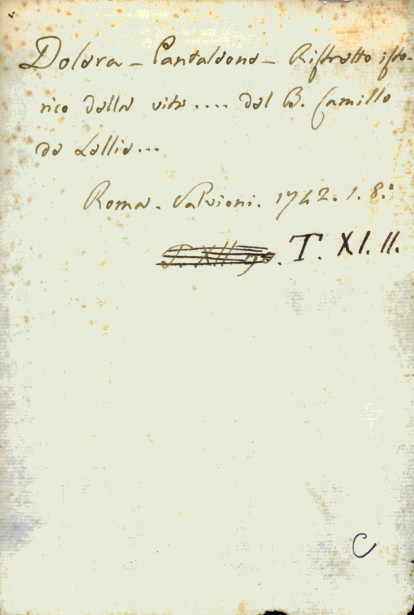 Dolera - Pantaleone - Ristretto isto-
rico della vita .... del B. Camillo
de Lellis...
Roma. Salvioni. 1742. 1. 8.º
T. XI. 11.
C